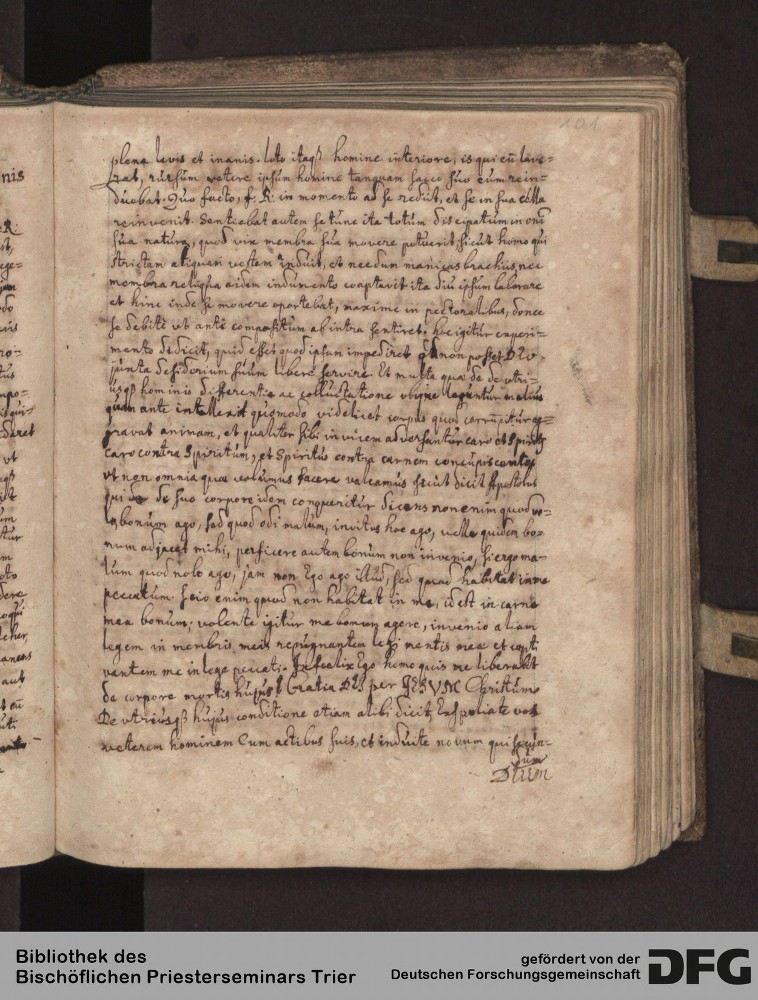 101
plena levis et inanis. Loto itaqꝫ homine interiore, is qui eū lave-
rat, rursum vetere ipsum homine tanquam sacco suo eum rein-
duebat. Quo facto, f. R. in momento ad se rediit, et se in sua cella
reinvenit. Sentiebat autem se tunc ita totum discipatum in oni
sua natura, quod vix membra sua movere potuerit, sicut homo qui
strictam aliquam vestem induit, et necdum manicas brachiis, nec
membra reliqua eidem indumento coaptavit ita diu ipsum laborare
et hinc inde se movere oportebat, maxime in pectoralibus, donec
se debitè ut antè compositum ab intra sentiret. hoc igitur experi-
mento didicit, quid esset quod ipsum impediret non posset DEo
juxta desiderium suum liberè servire. Et multa quæ de de utri-
usqꝫ hominis differentia ac colluctatione ubiqꝫ leguntur melius
quam ante intellexit quomodo videlicet corpus quod corrūpitur ag-
gravat animam, et qualiter sibi in vicem adversantur caro et Spirits
caro contra Spiritum, et Spiritus contra carnem concupiscentes
ut non omnia quæ volumus facere valeamus sicut dicit Apostolus
qui de suo corpore idem conqueritur dicens non enim quod vo-
lo bonum ago, sed quod odi malum, invitus hoc ago, velle quidem bo-
num adjacet mihi, perficere autem bonum non invenio, si ergo ma-
lum quod nolo ago, jam non Ego ago illud, sed quod habitat in me
peccatum. Scio enim quod non habitat in me, id est in carne
mea bonum; volente igitur me bonum agere, invenio aliam
legem in membris meis repugnantem legi mentis meæ et capti
vantem me in lege peccati. Infelix Ego homo quis me liberabit
de corpore mortis hujus? Gratia DEI per JESVM Christum
De utriusqꝫ hujus conditione etiam alibi dicit, Exspoliate vos
veterem hominem Cum actibus suis, et induite novum qui secun-
dum
DEum
nis
R.
Bibliothek des
Bischöflichen Priesterseminars Trier
gefördert von der
Deutschen Forschungsgemeinschaft
DFG